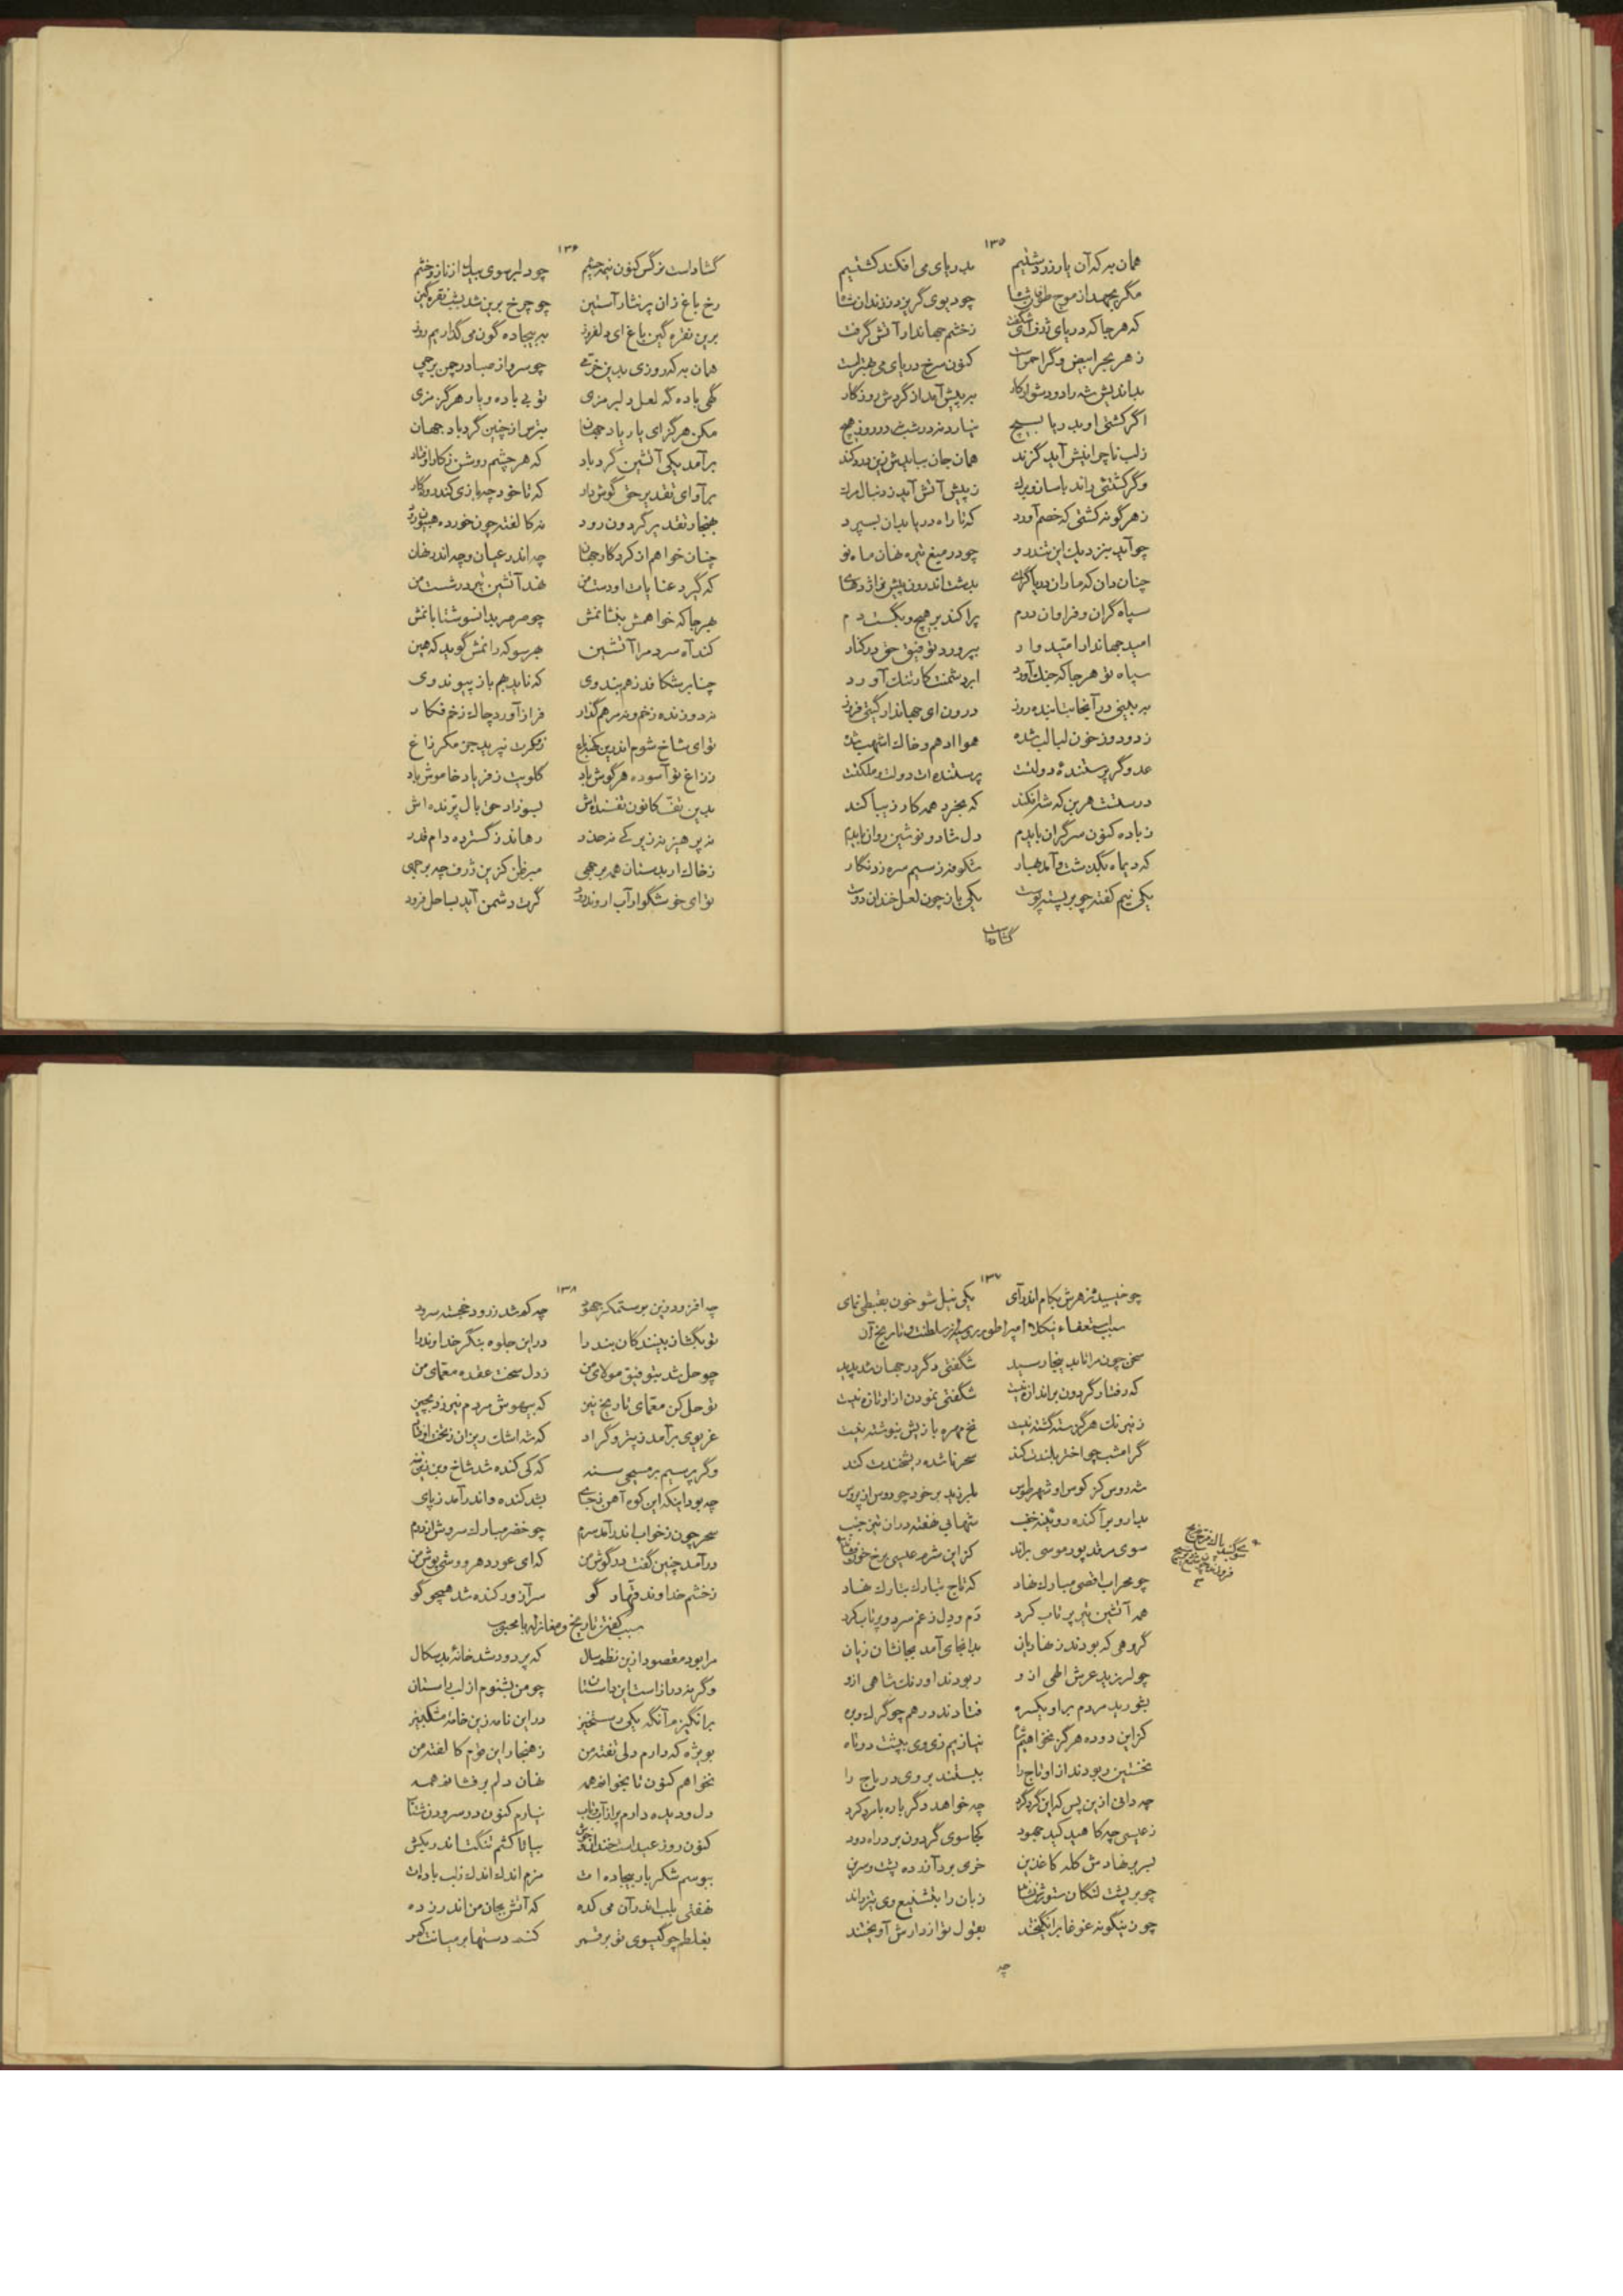 ١٣٥
همان به که آن یار زردشتیم بدریای می افکند کشتیم
مگر بجهد از موج طوفان شاه چو دیوی گریزد زندان شاه
که هر جا که دریای ژرف ای شگفت ز خشم جهاندار آتش گرفت
ز هر بحر ابیض وگر احمر است کنون سرخ دریای می بهتر است
بداندیش شه را دو دشوار کار به پیش آمد از گردش روزگار
اگر کشتی او بدریا بسیچ نیارد نبرد شب در روز هیچ
ز لب ناچرانیش آید گزند همان جان بیابدش زین درد کند
وگر کشتئی راند با ساز و برگ ز پیش آتش آید ز دنبال مرگ
ز هر گونه کشتی که خصم آورد که تا راه دریا بدان بسپرد
چو آید بنزدیک این تندرو چو در میغ تیره نهان ماه نو
چنان دان که ماران دریاگرای بدشت اندرون پیش نر اژدهای
سپاه گران و فراوان درم پراکند بر هیچ و بگسست دم
امید جهاندار امیدوار بپرورد توفیق حق در کنار
سپاه تو هر جا که جنگ آورد ابر دشمنت کار تنگ آورد
به بینی در آنجا بتابنده روز درون ای جهاندار گیتی فروز
ز دود و ز خون لبالب شده هوا ادهم و خاک اشهب شده
عدو گر پرستندهٔ دولتت پرستنده ات دولت و ملکتت
درستست هرین که شه رانکند که بخرد همه کار زیبا کند
ز باده کنون سرگران بایدم دل شاد و نوشین روان بایدم
که دیماه بگذشت و آمد بهار شکوفه ز سیم سره زد نگار
یکی نیم کفته چو بر پسته پوست یکی باز چون لعل خندان دوست
گشاد است
١٣٦
گشاد است نرگس کنون نیمه چشم چو دلبر بسوی بیدل از ناز و خشم
رخ باغ زان پر نثار آستین چو چرخ برین شد بشب نقره گین
برین نقره گین باغ ای دلفروز به بیجاده گون می گذاریم روز
همان به که روزی بدین خرمی چو سرو از صبا در چمن برچمی
گهی باده گه لعل دلبر مزی تو بی باده و یار هرگز مزی
مکن هرگز ای یار یاد جهان بترس از چنین گرد باد جهان
برآمد یکی آتشین گرد باد که هر چشم روشن ز کار اوفتاد
برآوای تقدیر حق گوش دار که تا خود چه بازی کند روزگار
بهنجار تقدیر گردون رود نه کالفته چون خورده هپیون رود
چنان خواهم از کردگار جهان چه اندر عیان و چه اندر نهان
که گیرد عنایات او دست من نهد آتشین تیر در شست من
بهر جا که خواهمش بنشانمش چو صرصر بدانسو شتابانمش
کند آه سرد مرا آتشین بهر سو که رانمش گوید که هین
چنا بر شکافد ز هم پهلوی که ناید بهم باز پیوند وی
نه دوزنده زخم و نه مرهم گذار فراز آورد چاک زخم فکار
توای شاخ شوم اندرین کهنه باغ ز مکرت نپرید جز مکر زاغ
ز زاغ تو آسوده هر گوش باد گلویت ز فریاد خاموش باد
بدین تفّ کانون تفسنده اش بسوزاد حق بال پرّنده اش
نه پرهیز نه زیرکی نه حذر رهاند ز گسترده دام قدر
ز خاک ار بدستان همه برجهی مبر ظن کزین ژرف چه برجهی
توای خوشگوار آب اروند رود گرت دشمن آید بساحل فرود
١٣٧
چو خسپید ز هرش بکام اندر آی یکی نیل شو خون بقبطی نمای
سبب استعفاء نیکلا امپراطور روسیه از سلطنت و تاریخ آن
سخن چون مرا تا بدینجا رسید شگفتی دگر در جهان شد پدید
که رفتار گردون بر اندازه نیست شگفتی نمودن از او تازه نیست
ز نیرنگ هرگز سته گشته نیست نخ مهره بازیش بنوشته نیست
گر امشب چو اختر بلندت کند سحر ناشده ریشخندت کند
شه روس کز کوس او شهر طوس بلرزید بر خود چو روس از پروس
بیارو برآکنده روئینه خنب شهابی نهفته در آن تیز جنب
سوی مرقد پور موسی براند کز این شرمه عیسی برخ خوی فشاند
چو محراب اقصی مبارک نهاد که تاج تبارک بتارک نهاد
همه آتشین تیر پرتاب کرد دم و دل ز غم سرد و پرتاب کرد
گروهی که بودند ز نهاریان بدانجای آمد بجانشان زیان
چو لرزید عرش الهی ازو ربودند اورنگ شاهی ازو
بشورید مردم بر او یکسره فتادند در هم چو گرگ و بره
کز این دوده هرگز نخواهیم شاه نیازیم زی وی بپشت دوتاه
نخستین ربودند از او تاج را ببستند بر وی در باج را
چه دانی از این پس که این گرد گرد چه خواهد دگر باره با مرد کرد
ز عیسی چه کاهید کید جهود کجا سوی گردون بر در راه دود
بسر بر نهادش کله کاغذین خری بر د آزرده پشت و سرین
چو بر پشت لنگان ستورش نشاند زبان را بتشنیع وی تیز راند
چو زینگونه غوغا برانگیختند بقول تو از دارش آویختند
چه
١٣٨
چه افزود زین بر ستمگر جهود چه کم شد ز رود خجسته سرود
تو بگشای بینندگان بند را در این جلوه بنگر خداوند را
چو حل شد بتوفیق مولای من ز دل سخت عقده معمای من
تو حل کن معمای تاریخ نیز که بیهوش مردم نیرزد بچیز
غریوی برآمد ز پتروگراد که شه اشک ریزان ز تخت اوفتاد
وگر پرسیم بر مسیحی سنه که کی کنده شد شاخ و بن ز تنه
چه بود اینکه این کوه آهن ز جای بشد کنده و اندر آمد ز پای
سحر چون ز خواب اندر آمد سرم چو خضر مبارک سروش از درم
درآمد چنین گفت در گوش من که ای عود دهر و وشی پوش من
ز خشم خداوند قهار گو سر آزور کنده شد همچو گو
سبب گفتن تاریخ و مغازله با محبوب
مرا بود مقصود از این نظم سال که پر دود شد خانهٔ بدسگال
وگرنه دراز است این داستان چو من بشنوم از لب باستان
برانگیزم آنگه یکی رستخیز در این نامه زین خامهٔ مشکبیز
بویژه که دارم دلی تفته من ز هنجار این قوم کالفته من
نخواهم کنون تا بخوانم همه نهان دلم بر فشانم همه
دل و دیده دارم پر از آب و تاب نیارم کنون در سرودن شتاب
کنون روز عید است خندان بیا تا کشم تنگت اندر بکش
ببوسم شکر بار بیجاده ات مزم اندک اندک ز لب باده ات
نهفتی بلب اندر آن می کده که آتش بجان من اندر زده
بغلطم چو گیسوی تو بر قمر کنم دستها بر میانت کمر